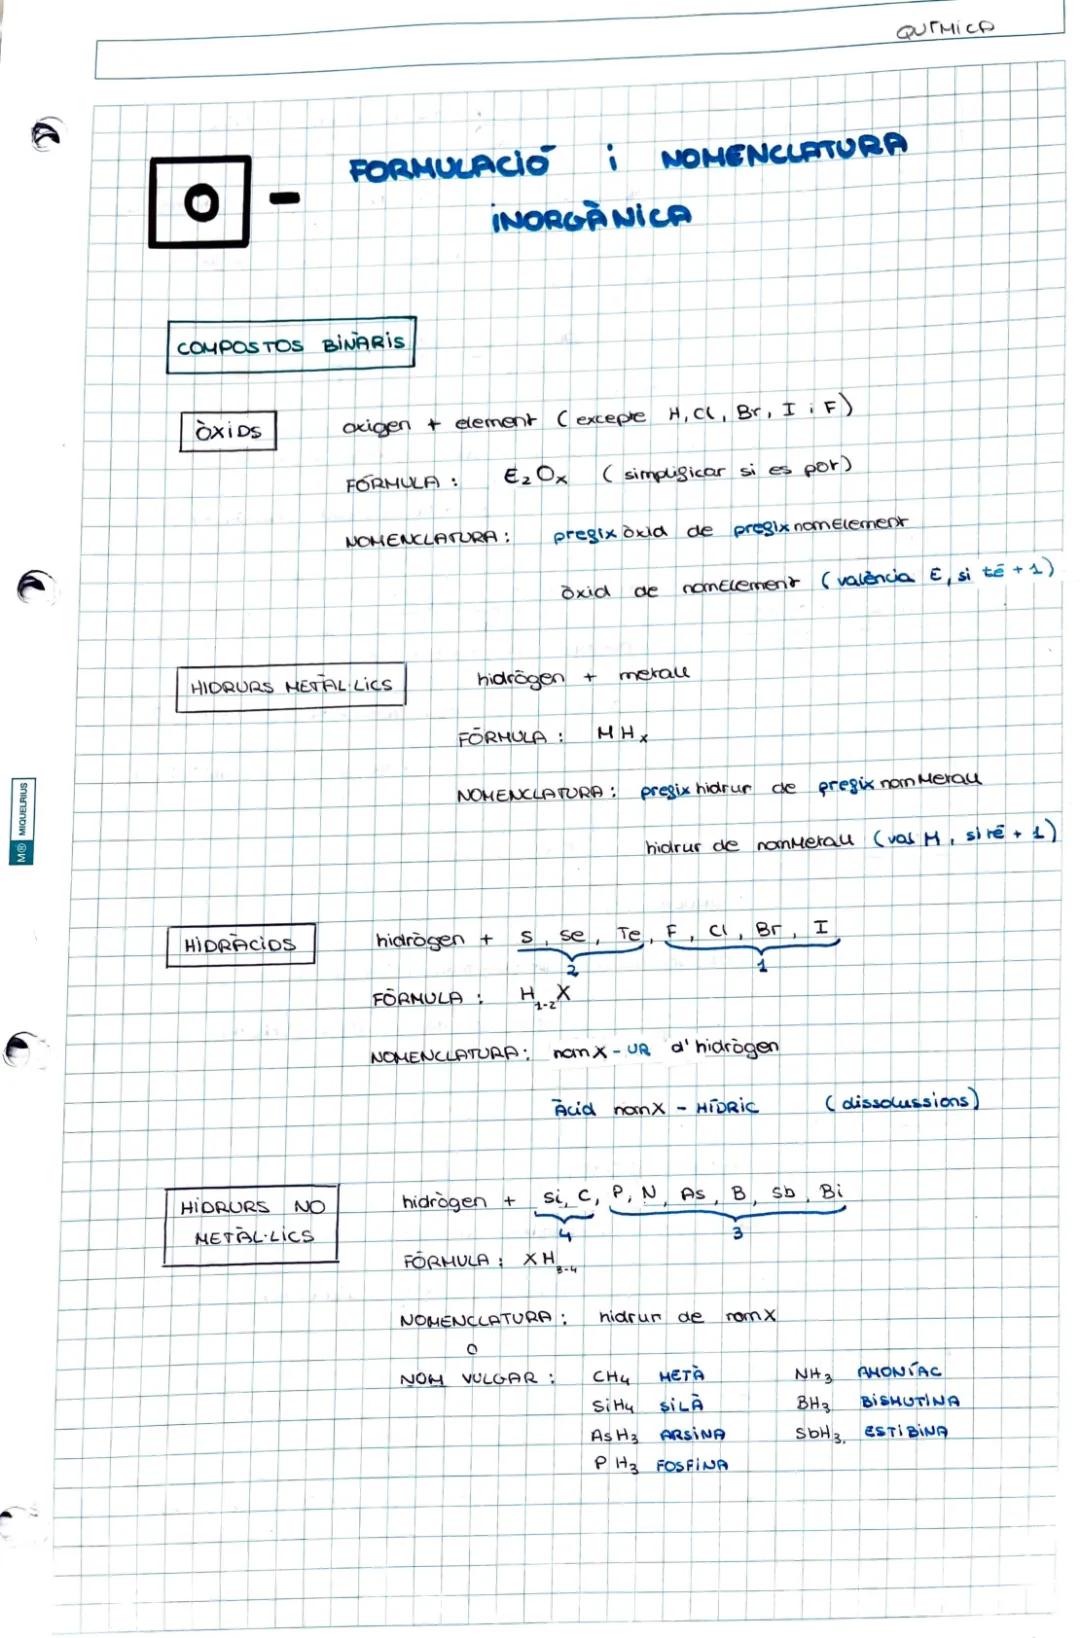 QUÍMICA
0 - FORMULACIÓ i NOMENCLATURA
INORGÀNICA
COMPOSTOS BINÀRIS
ÒXIDS
oxigen + element (excepte H, Cl, Br, I i F)
FÓRMULA: E₂Oₓ (simplificar si es pot)
NOMENCLATURA: prefixòxid de prefixnomElement
òxid de nomElement (valència E, si té +1)
HIDRURS METÀL·LICS
hidrògen + metall
FÓRMULA: MHₓ
NOMENCLATURA: prefixhidrur de prefixnomMetall
hidrur de nomMetall (val M, si té +1)
HIDRÀCIDS
hidrògen + S, Se, Te, F, Cl, Br, I
2 1
FÓRMULA: H₁₋₂X
NOMENCLATURA: nomX-UR d'hidrògen
Àcid nomX-HÍDRIC (dissolussions)
HIDRURS NO
METÀL·LICS
hidrògen + Si, C, P, N, As, B, Sb, Bi
4 3
FÓRMULA: XH₃₋₄
NOMENCLATURA: hidrur de nomX
O
NOM VULGAR: CH₄ METÀ NH₃ AMONÍAC
SiH₄ SILÀ BH₃ BISMUTINA
AsH₃ ARSINA SbH₃ ESTIBINA
PH₃ FOSFINA
MR MIQUELRIUS